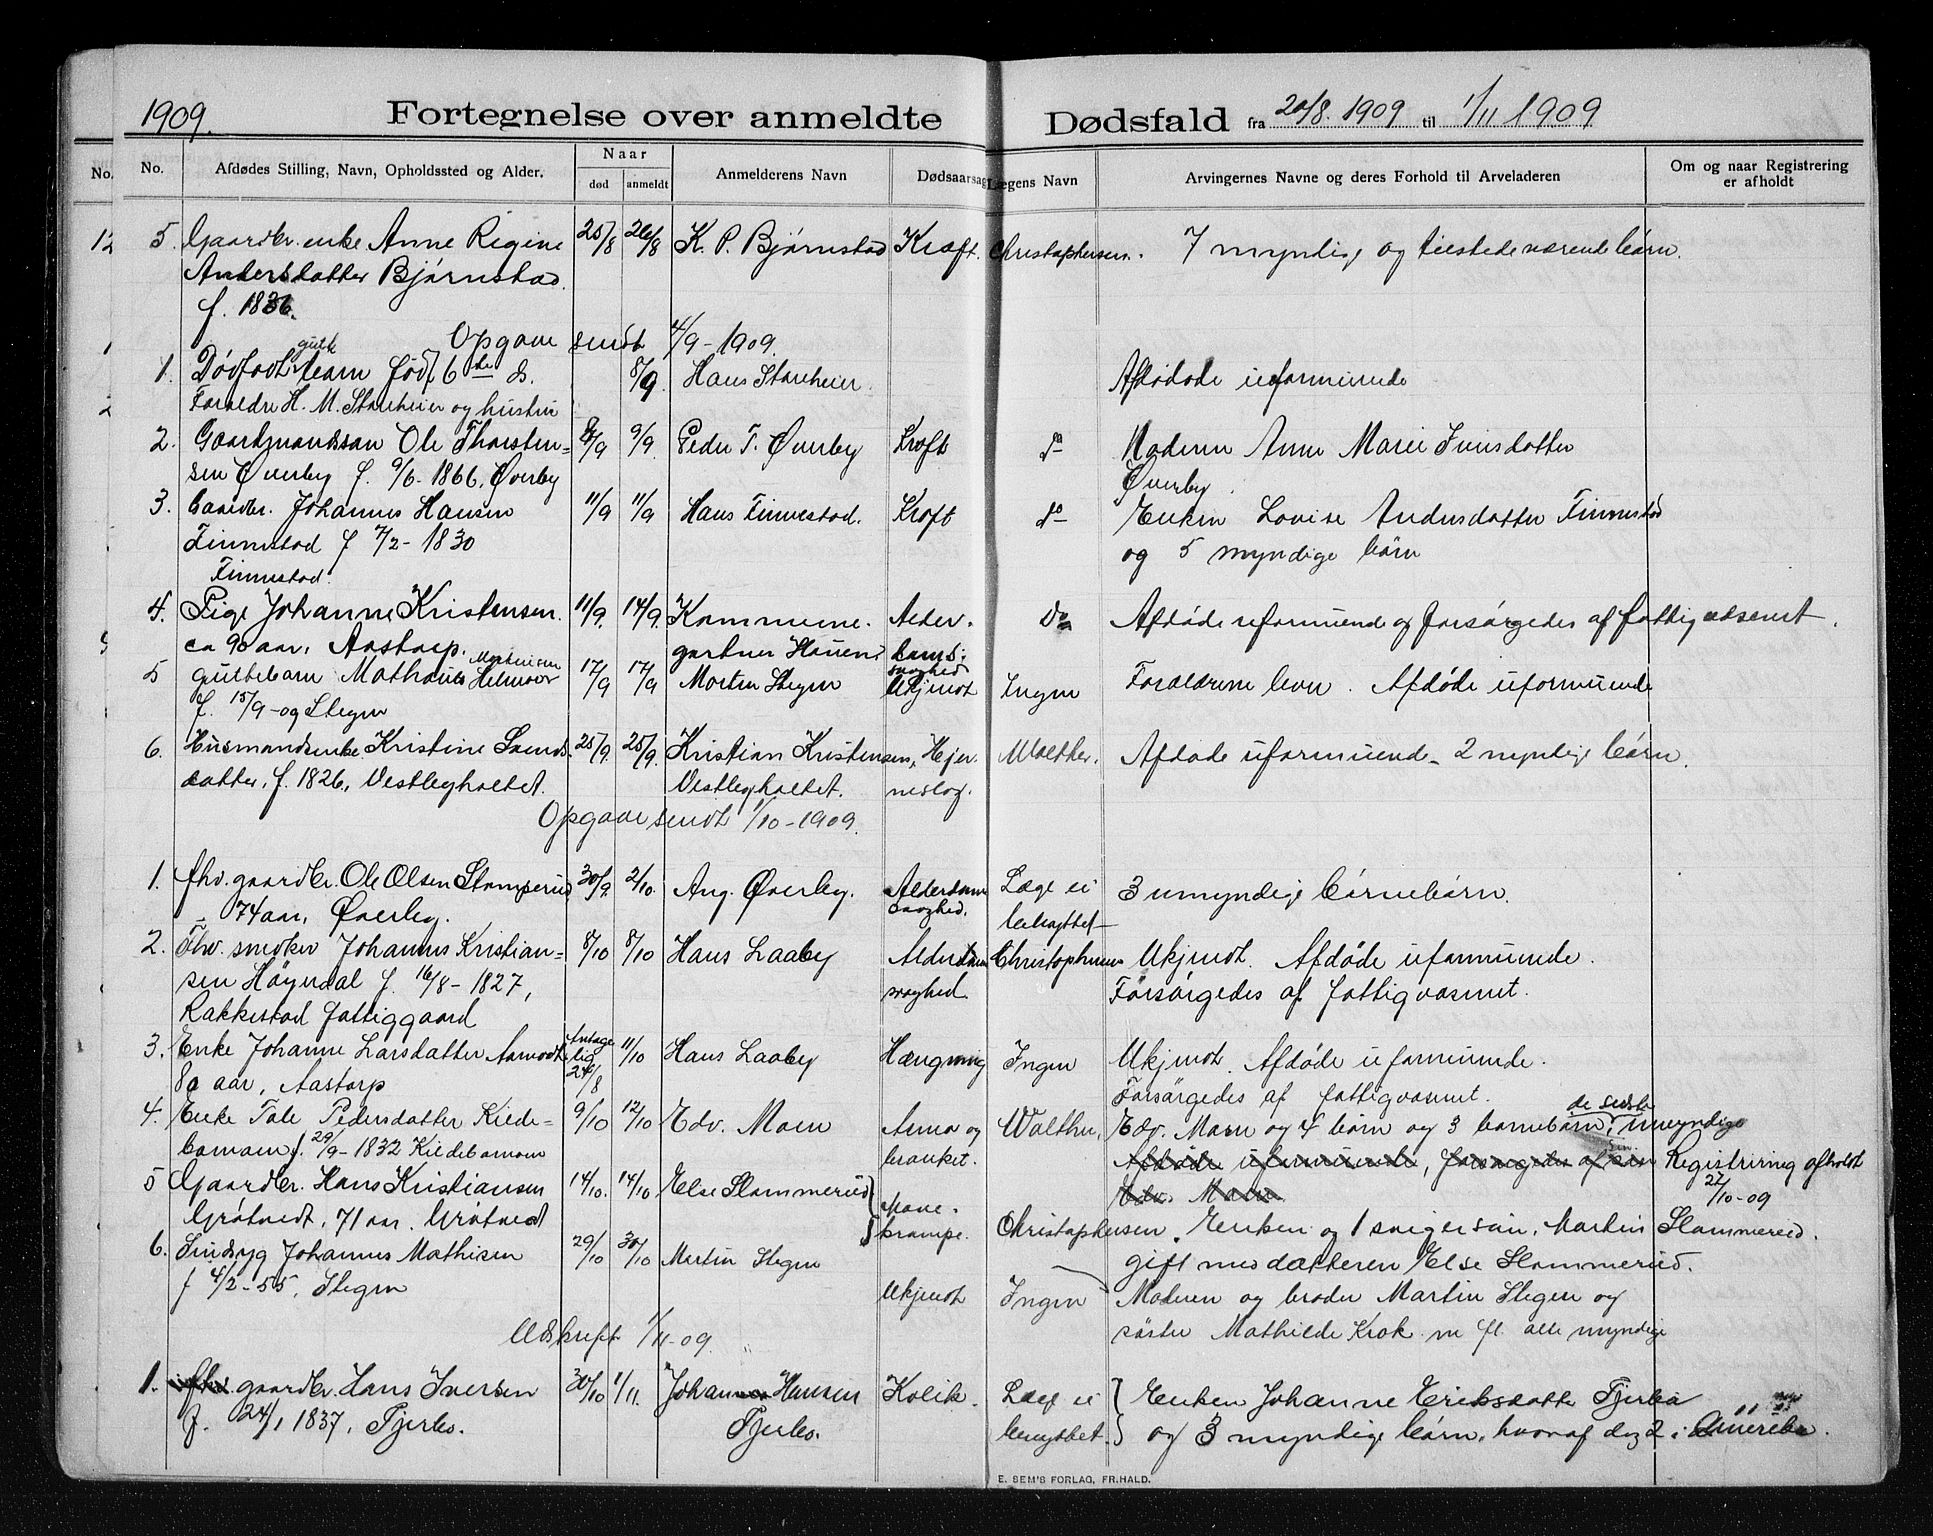 1909.
Fortegnelse over anmeldte Dødsfald fra 20/8. 1909 til 1/11 1909
No.
No. Afdødes Stilling, Navn, Opholdssted og Alder. Naar død anmeldt Anmelderens Navn Dødsaarsag Lægens Navn Arvingernes Navne og deres Forhold til Arveladeren Om og naar Registrering er afholdt
5. Gaardbr. enke Anne Regine 25/8 26/8 K. P. Bjørnstad Kræft. Christophersen. 7 myndige og tilstedeværende børn.
Andersdatter Bjørnstad.
f. 1836.
Opgave sendt 4/9-1909.
1. Dødfødt gutt barn født 6te ds. 8/9 Hans Storeheier Afdøde uformuende
Foreldre H. M. Storeheier og hustru
2. Gaardmandssøn Ole Thorsten= 8/9 9/9. Peder T. Øverby Kræft do Moderen Anne Marie Iversdatter
sen Øverby f. 9/6-1866, Øverby Øverby.
3. Gaardbr. Johannes Hansen 11/9 11/9 Hans Finnestad. Kræft do Enken Lovise Andersdatter Finnestad
Finnestad f 7/2-1830 og 5 myndige børn
Finnestad.
4. Pige Johanne Kristensen. 11/9. 14/9. Kommune- Alder- Do Afdøde uformuende og forsørgedes af fattigvæsenet.
ca 90 aar, Aastorp. gartner Hauen. doms-
svaghed
5 guttebarn Mathæus Mortensen 17/9 17/9 Morten Stegen Ukjendt Ingen Forældrene lever. Afdøde uformuende
f. 15/9-09 Stegen
6. Husmandsenke Kristine Svends- 25/9. 25/9. Kristian Kristensen, Hjer- Walther. Afdøde uformuende - 2 myndige børn.
datter, f. 1826, Vestleyholtet. Vestleyholtet. neslag.
Opgave sendt 1/10-1909.
1. fhv. gaardbr. Ole Olsen Stomperud 30/9. 2/10. Aug. Øverby. Alderdoms Læge ei 3 umyndige børnebørn.
74 aar, Øverby. svaghed. benyttet
2. Fhv. snedker Johannes Kristian= 8/10 8/10 Hans Laaby Alderdoms Christophersen Ukjendt. Afdøde uformuende.
sen Høgerdal f. 16/8-1827, svaghed Forsørgedes af fattigvæsenet.
Rakkestad fattiggaard
3. Enke Johanne Larsdatter Aamodt Antage- 11/10 Hans Laaby Hængning Ingen Ukjendt. Afdøde uformuende.
80 aar, Aastorp lig 24/8 Forsørgedes af fattigvæsenet.
4. Enke Tale Pedersdatter Kilde= 9/10 12/10 Edv. Moen Astma og Walther. Edv. Moen og 4 børn og 3 barnebørn, de sidste umyndige
bamoen f. 29/9-1832 Kildebamoen bronket. Afdøde uformuende, forsørgedes af søn Registrering afholdt
Edv. Moen. 22/10-09
5 Gaardbr. Hans Kristiansen 14/10. 14/10 Else Slommerud Mave-
Grøtvedt, 71 aar. Grøtvedt krampe. Christophersen. Enken og 1 svigersøn, Martin Slommerud.
gift med datteren Else Slommerud.
6. Sindsyg Johannes Mathisen 29/10 30/10 Martin Stegen
f 4/2-55, Stegen Ukjendt Ingen Moderen og broder Martin Stegen og
Udskrift 1/11-09. søster Mathilde Krok m fl. alle myndige
1. fhv. gaardbr. Hans Iversen 30/10 1/11. Johannes Hansen Kolik. Læge ei Enken Johanne Eriksdatter Tjerbo
f. 24/1 1837, Tjerbo. Tjerbo. benyttet. og 3 myndige børn, hvoraf dog 2 i Amerika.
E. SEM'S FORLAG, FR.HALD.